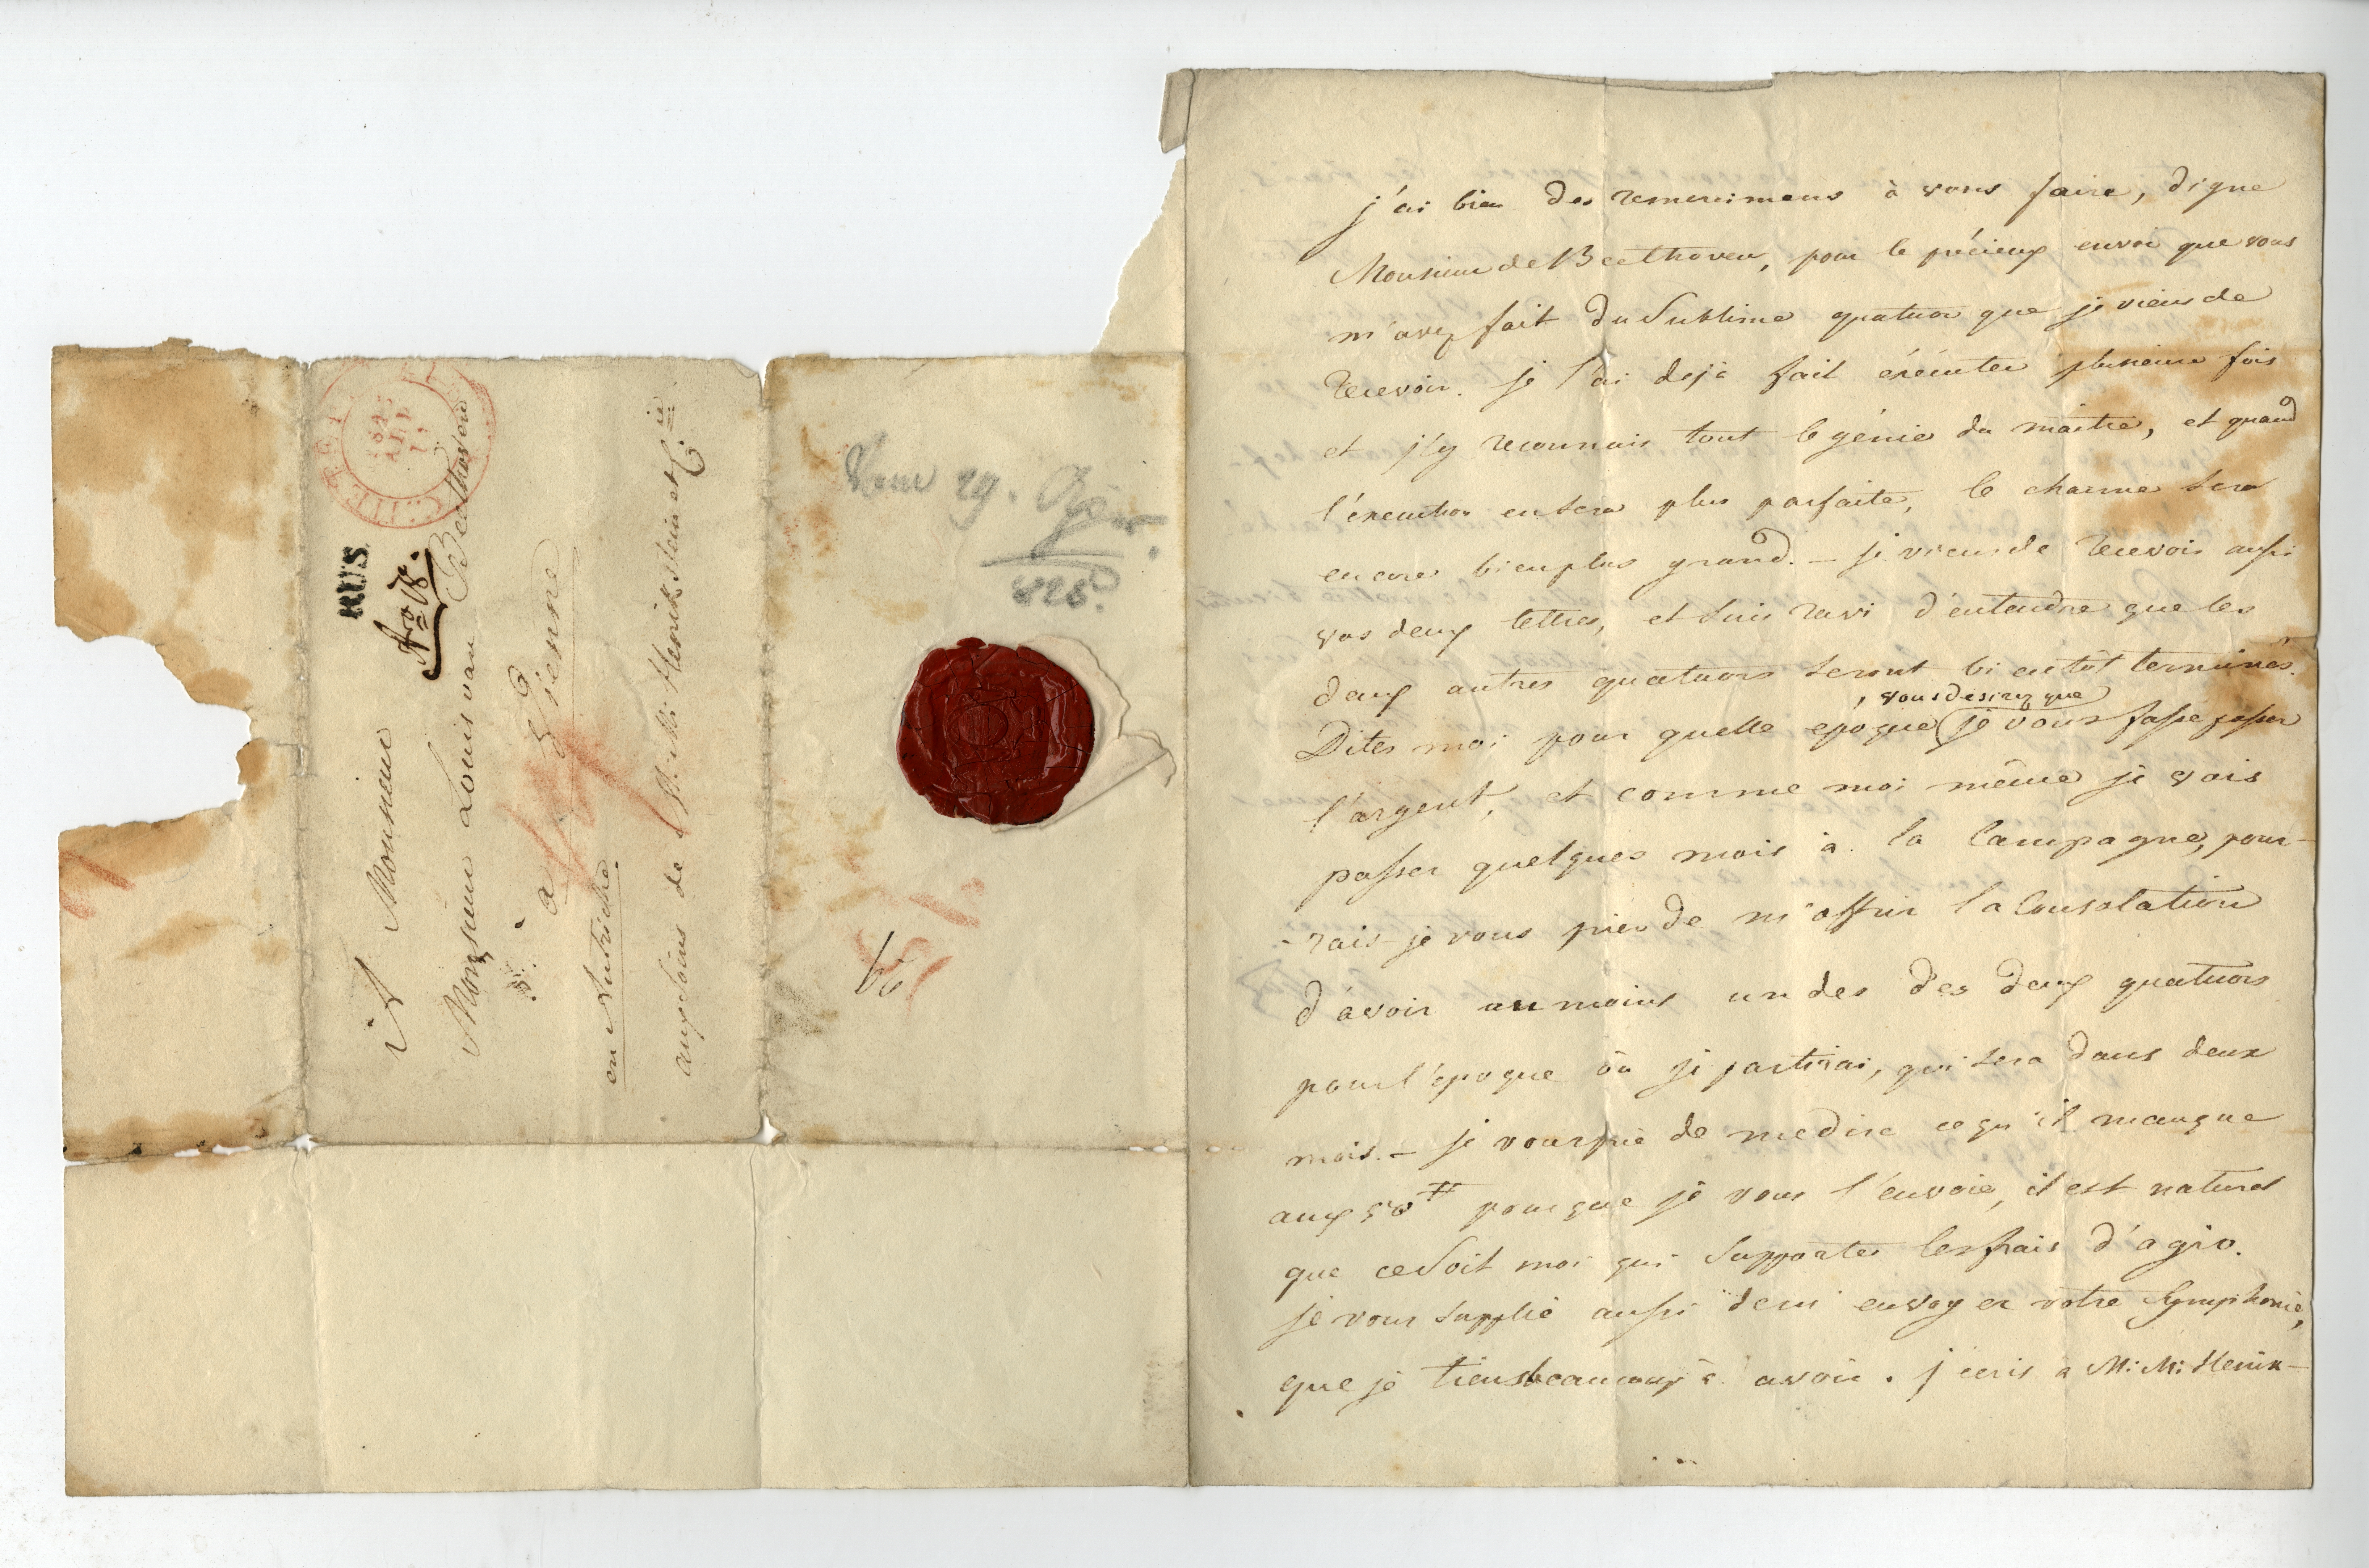 A Monsieur
Monsieur Louis van Beethoven
à Vienne
en Autriche.
aux soins de M: M: Henikstein et C.ie
RUS.
29.
825.
j'ai bien des remercimens à vous faire, digne
Monsieur de Beethoven, pour le précieux envoi que vous
m'avez fait du sublime quatuor que je viens de
recevoir. je l'ai dejà fait éxécuter plusieurs fois
et j'y reconnais tout le génie du maitre, et quand
l'execution en sera plus parfaite, le charme sera
encore bien plus grand. – je viens de recevoir aussi
vos deux lettres, et suis ravi d'entendre que les
deux autres quatuors seront bientôt terminés.
, vous desirez que
Dites moi pour quelle epoque je vous fasse passer
l'argent, et comme moi même je vais
passer quelques mois à la Campagne, pour-
-rais-je vous prier de m'offrir la Consolation
d'avoir au moins un des des deux quatuors
pour l'epoque où je partirai, qui sera dans deux
mois. – je vous prie de me dire ce qu'il manque
aux 50 # pour que je vous l'envoie, il est naturel
que ce soit moi qui supporte les frais d'agio.
je vous supplie aussi de m'envoyer votre Symphonie,
que je tiens beaucoup à avoir. j'ecris à M: M: Henik-